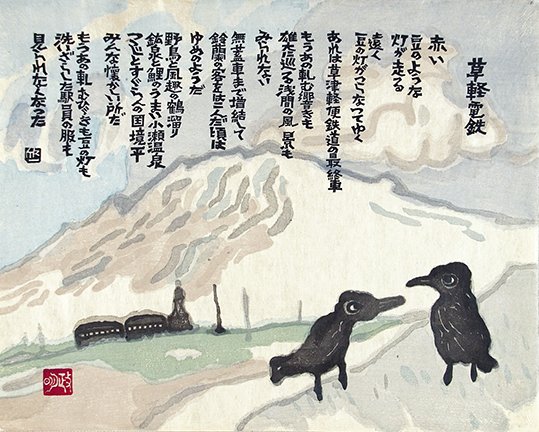 草軽電鉄
赤い
豆のような
灯が走る
遠く
豆の灯がつらなってゆく
あれは草津軽便鉄道の最終車
もうあの軋む響きも
巡る浅間の風景も
みられない
無蓋車まで増結して
鈴蘭の客をはこんだ頃は
ゆめのようだ
野鳥と風趣の鶴溜り
鉱泉と鯉のうまい小瀬温泉
国境平
みんな懐かしい所だ
もうあの軋むひびきも豆の灯も
洗いざらした駅員の服も
見られなくなった